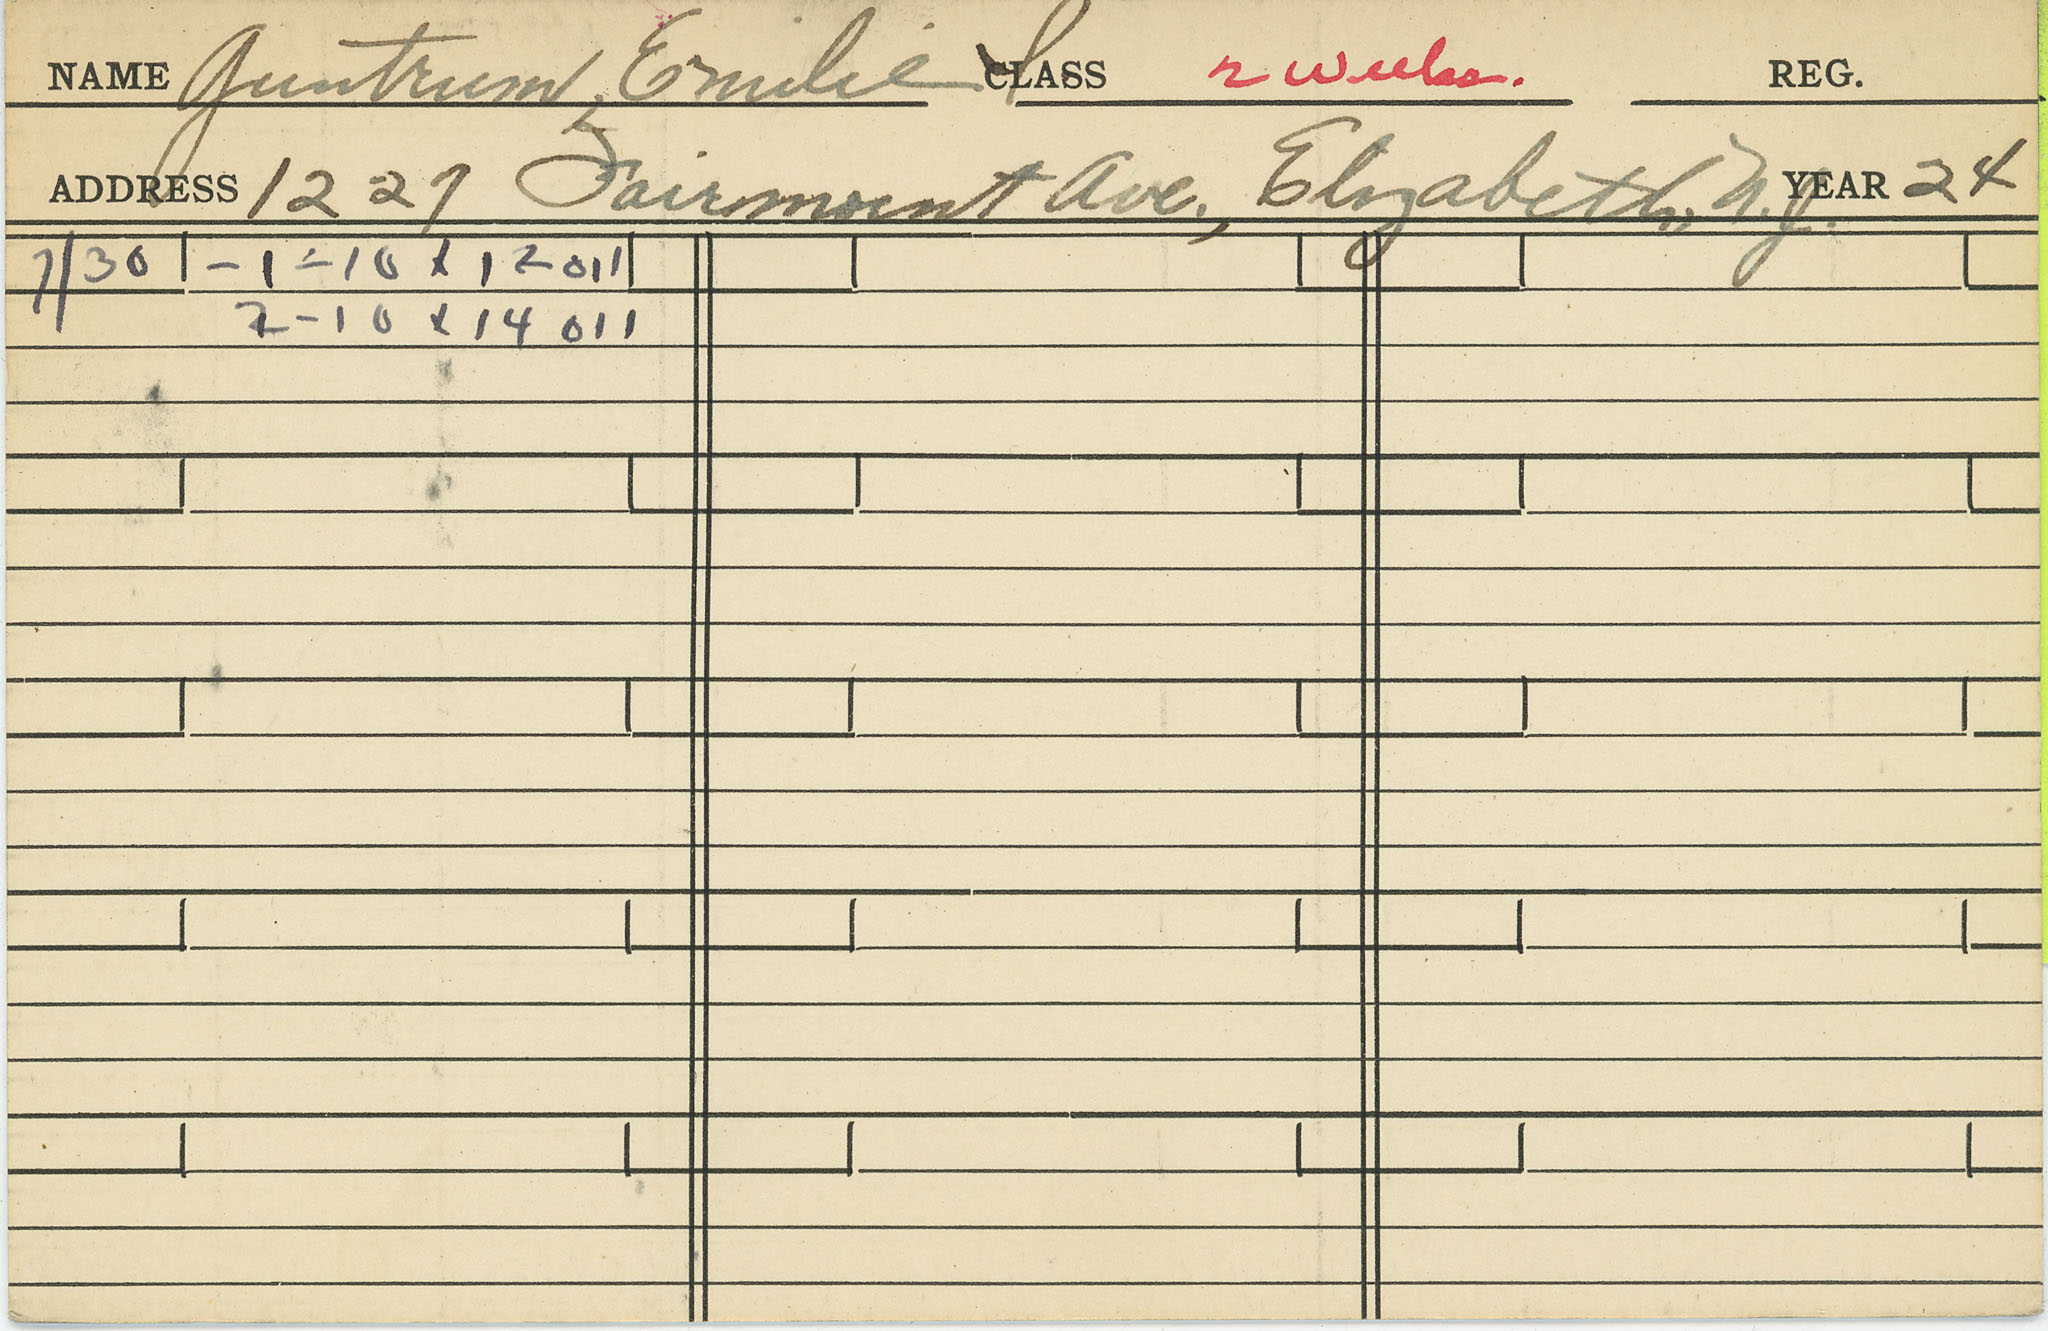 NAME Guntrum, Emilie S CLASS 2 weeks. REG.
ADDRESS 1227 Fairmount Ave., Elizabeth, N.J. YEAR 24
7/30 - 1 - 10 x 12 oil
2 - 10 x 14 oil